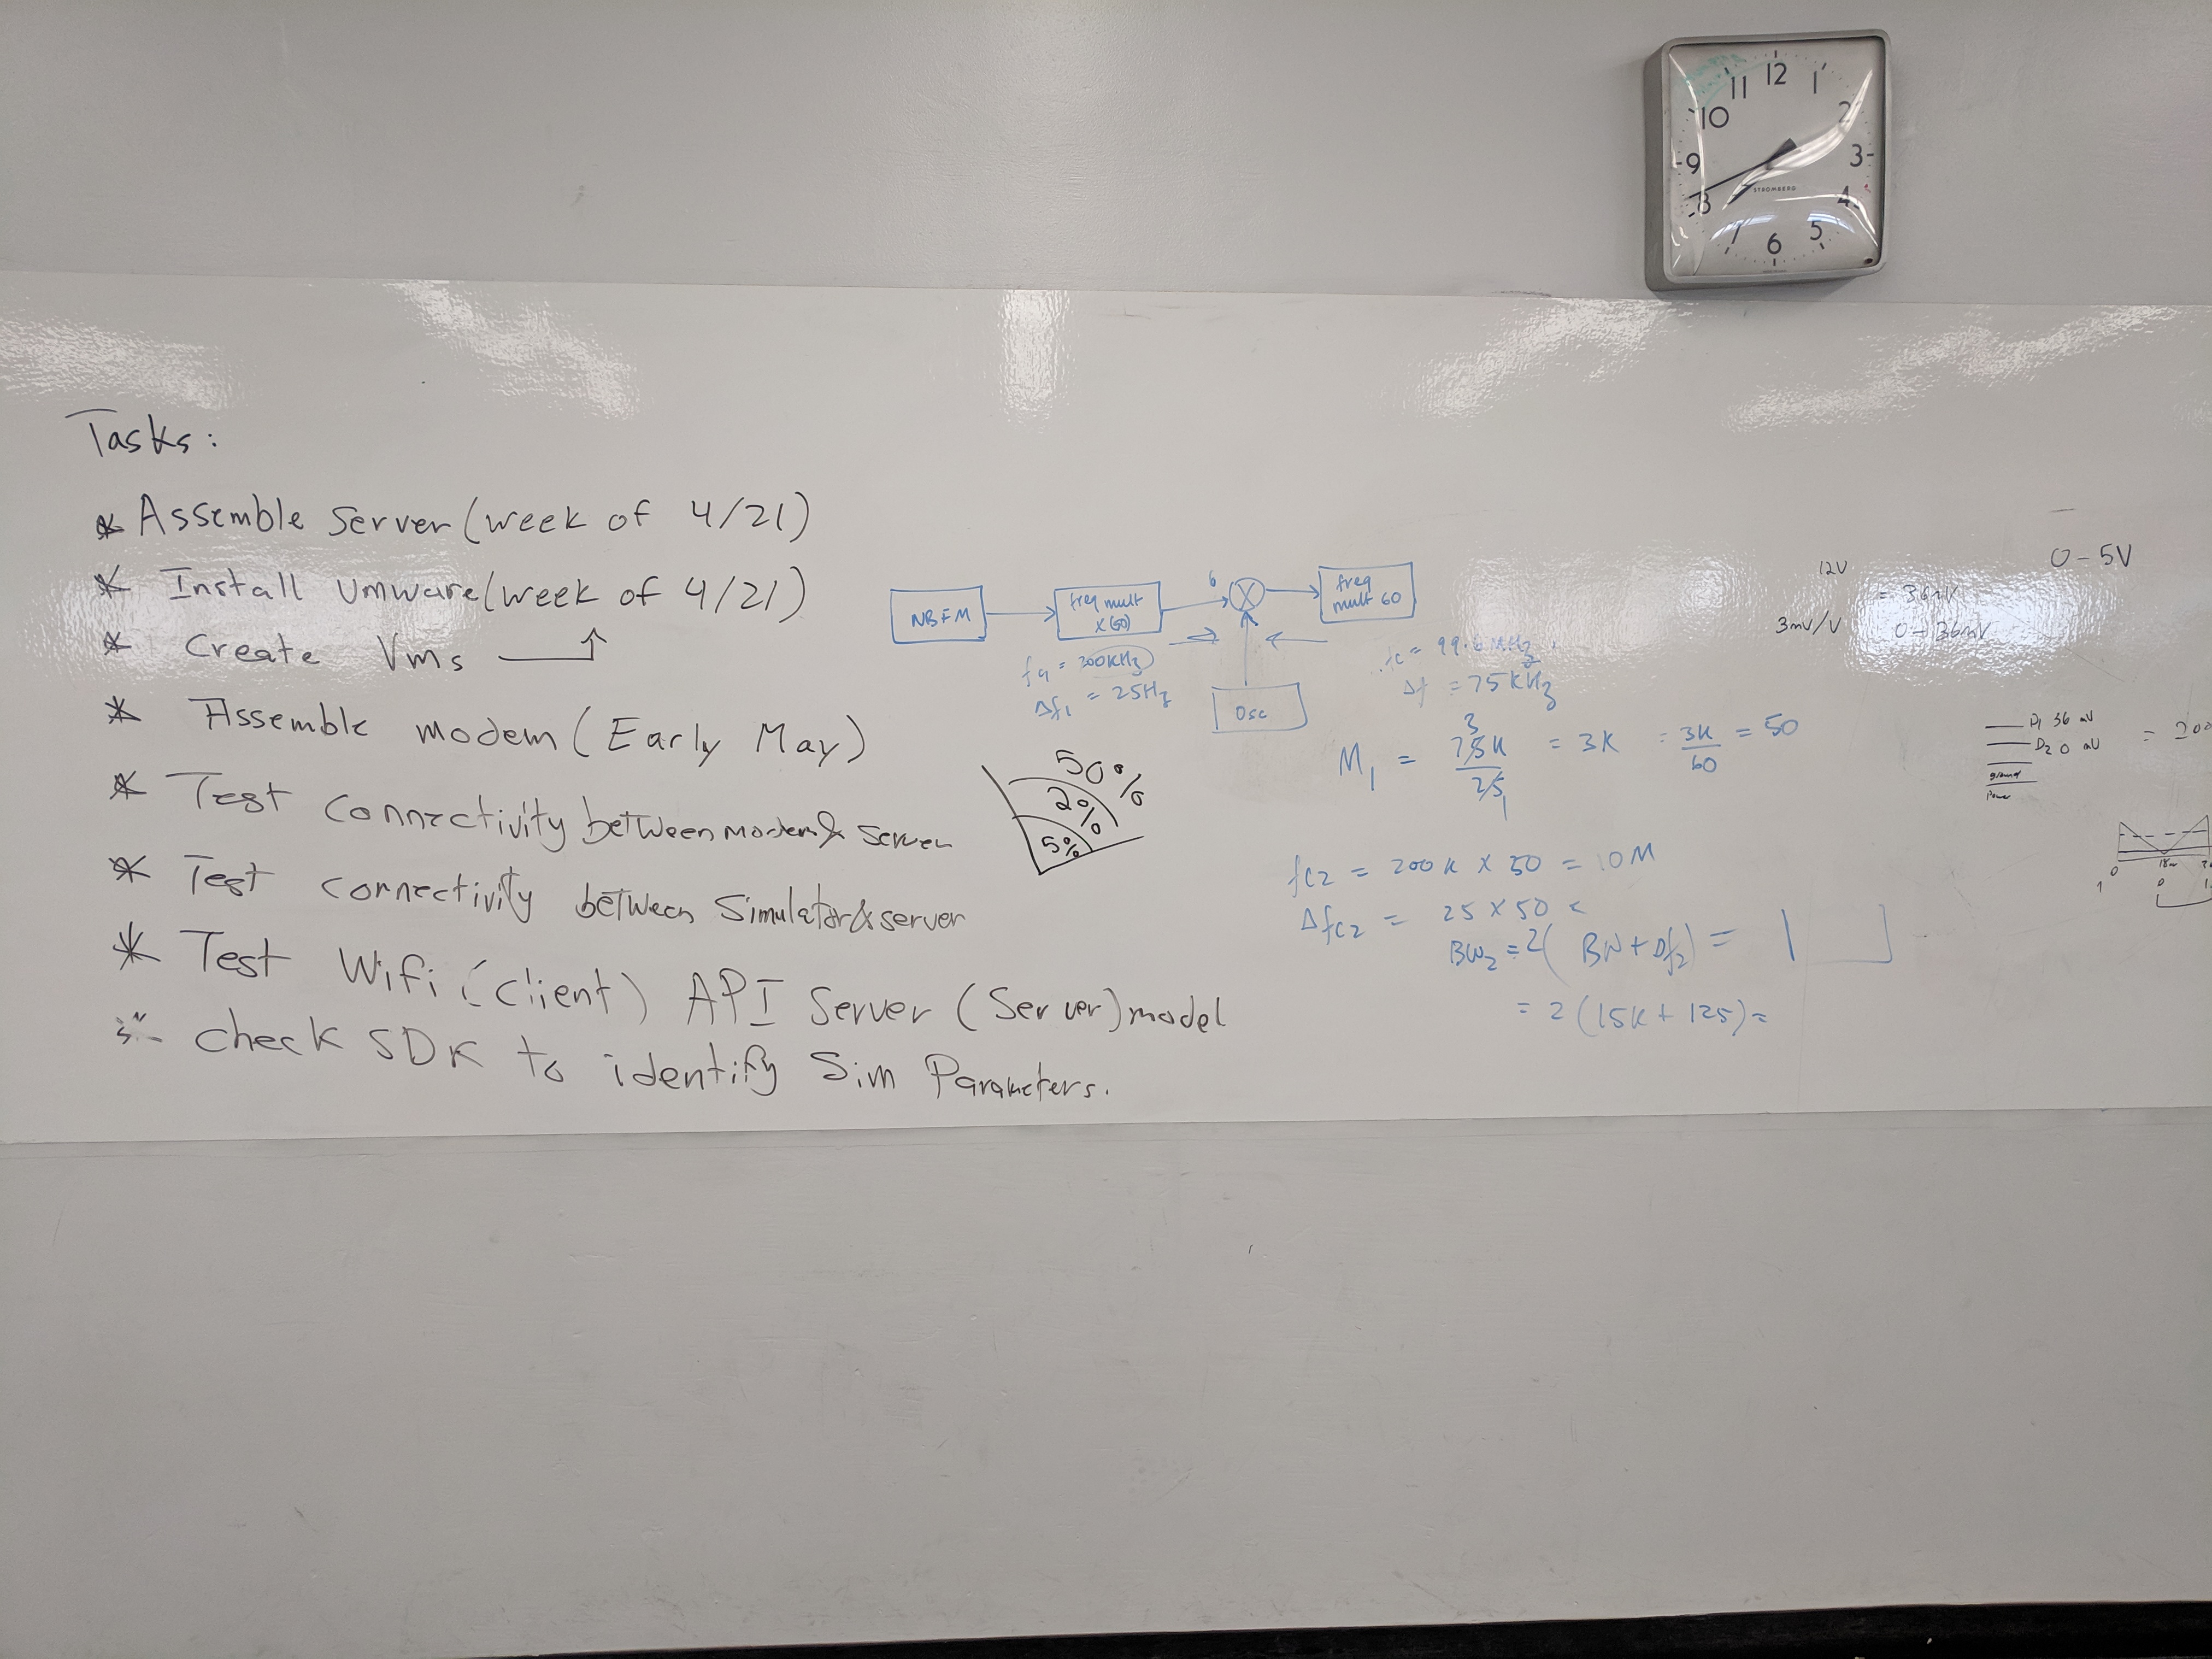 12
11
1
10
2
9
3
STROMBERG
8
4
7
5
6
Tasks:
* Assemble Server (week of 4/21)
* Install Vmware (week of 4/21)
* Create Vms
* Assemble modem (Early May)
* Test connectivity between modem & server
* Test connectivity between Simulator & server
* Test Wifi (client) API Server (Server) model
* check SDK to identify Sim Parameters.
50%
2%
5%
NBFM
freq mult
X (50)
6
X
freq
mult 60
Osc
= 200KHz
Δf1 = 25Hz
fc = 99.6 MHz
Δf = 75KHz
M1 = 75K / 25 = 3K = 3K / 60 = 50
3
1
fc2 = 200K X 50 = 10M
Δfc2 = 25 X 50 =
BW2 = 2( BW + Δf2) =
= 2 (15K + 125) =
12V
0-5V
= 36mV
3mV/V
0-36mV
D1 36 mV
D2 0 mV
ground
Power
= 200
0
0
1